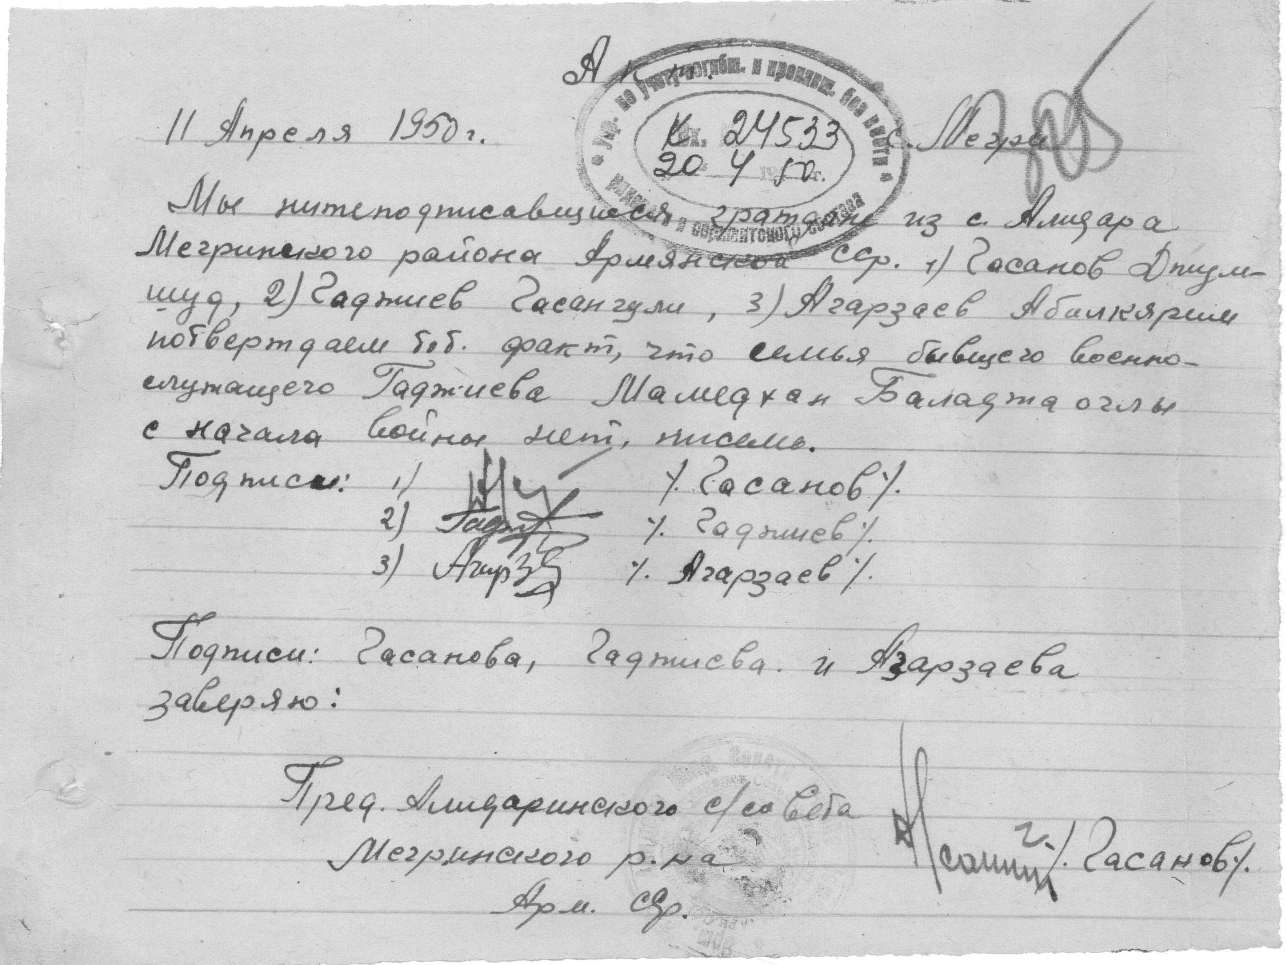 Акт
Упр. по учету погибш. и пропавш. без вести
рядового и сержантского состава
Вх. 24533
20 4 50 г.
11 Апреля 1950 г. с. Мегри
Мы нижеподписавшиеся граждане из с. Алидара
Мегринского района Армянской ССр. 1) Гасанов Джум-
шуд, 2) Гаджиев Гасангули, 3) Агарзаев Абилкярим
потверждаем т.б. факт, что семья бывшего военно-
служащего Гаджиева Мамедхан Баладжа оглы
с начала войны нет, писем.
Подписи: 1) /. Гасанов /.
2) Гадж /. Гаджиев /.
3) Агарз /. Агарзаев /.
Подписи: Гасанова, Гаджиева и Агарзаева
заверяю:
Пред. Алидаринского с/совета
Мегринского р.на /. Гасанов /.
Арм. ССр.